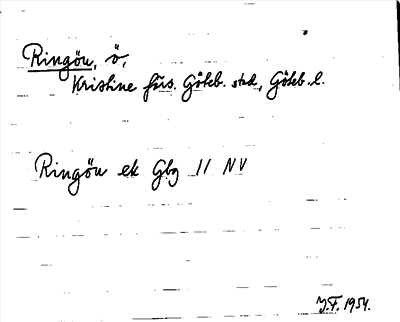 Ringön, ö,
Kristine förs. Göteb. stad, Göteb. l.
Ringön ek Gbg 11 NV
J.F. 1954.